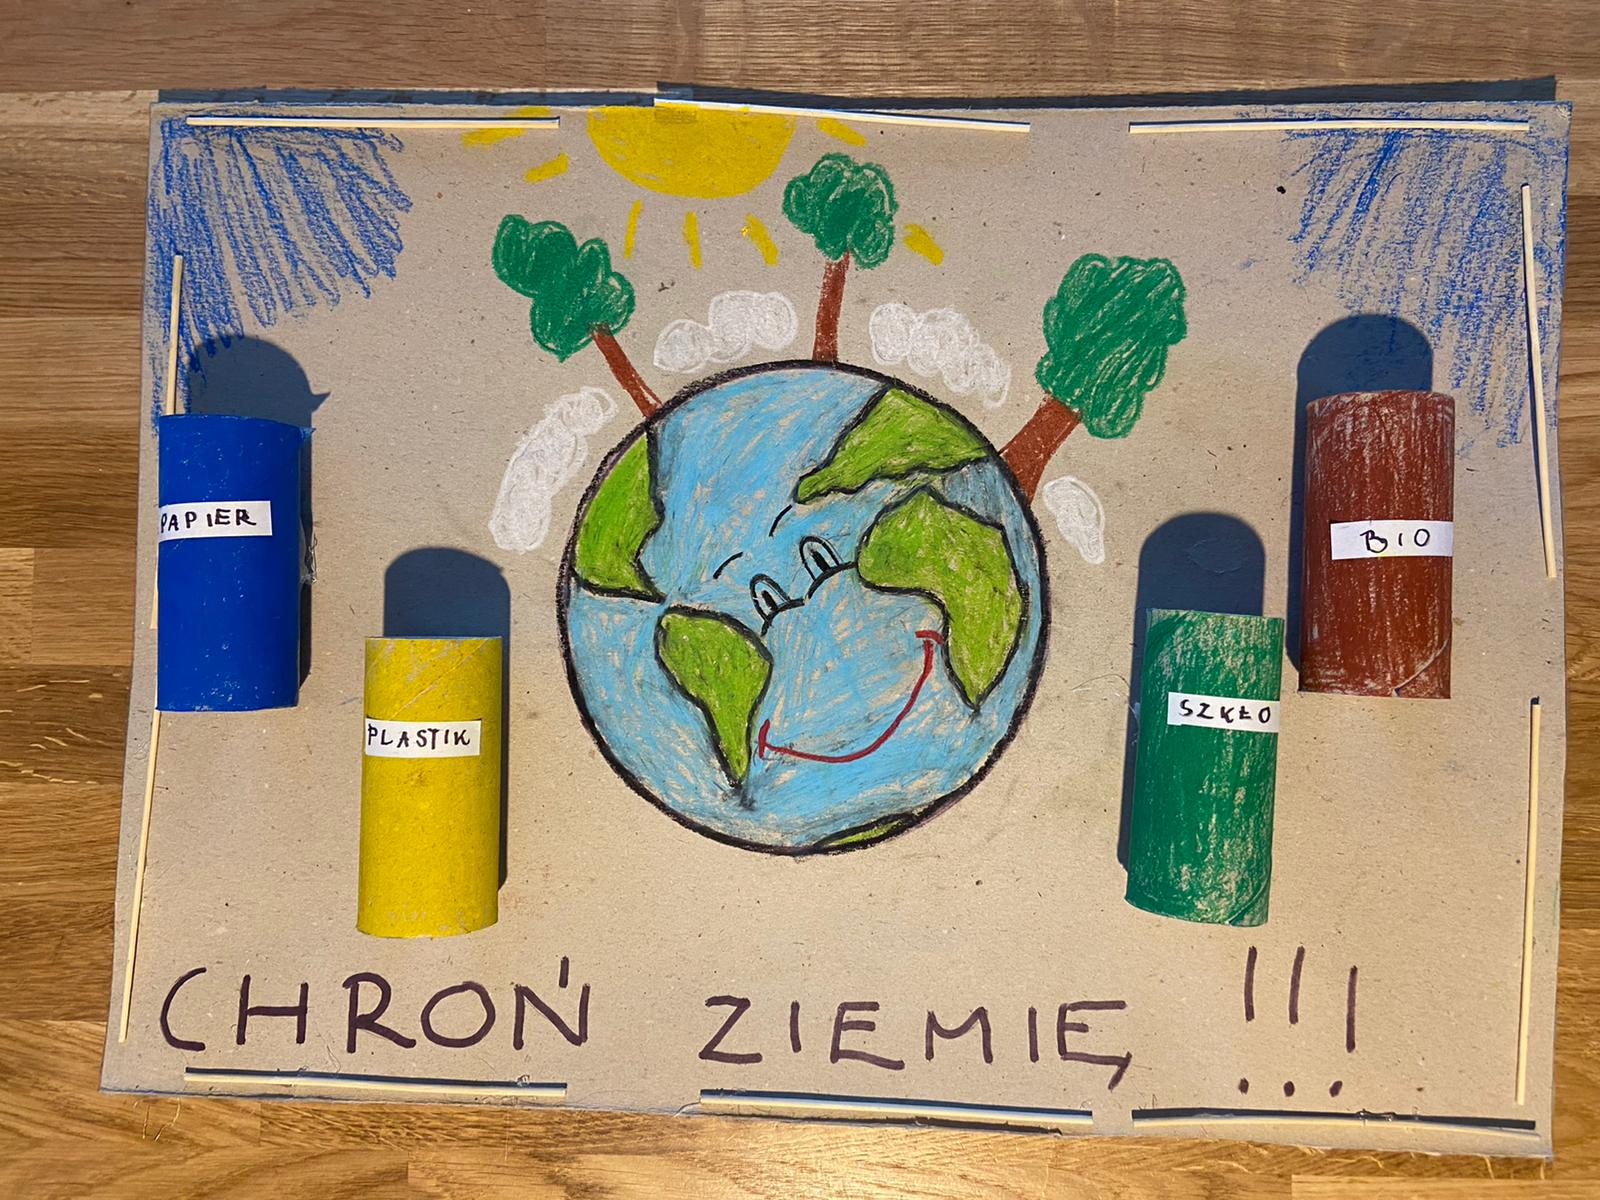 PAPIER
PLASTIK
SZKŁO
BIO
CHROŃ ZIEMIĘ !!!